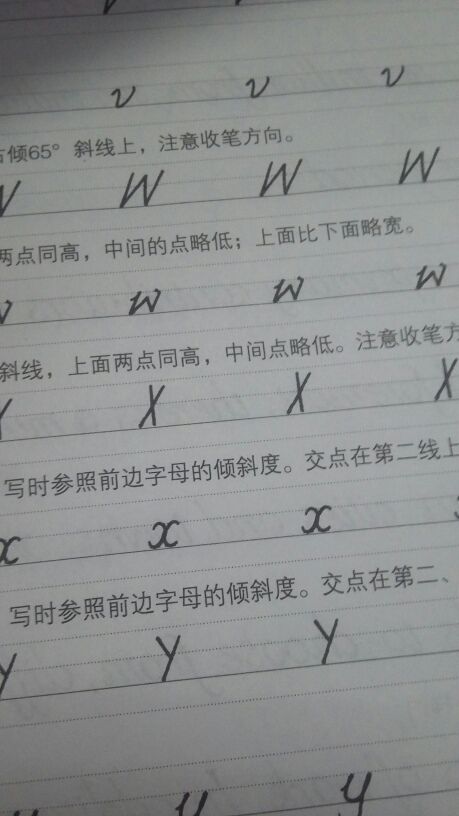 v v v
右倾65°斜线上，注意收笔方向。
W W W W
两点同高，中间的点略低；上面比下面略宽。
w w w w
斜线，上面两点同高，中间点略低。注意收笔方
X X X X
写时参照前边字母的倾斜度。交点在第二线上
x x x
写时参照前边字母的倾斜度。交点在第二、
Y Y Y
y y